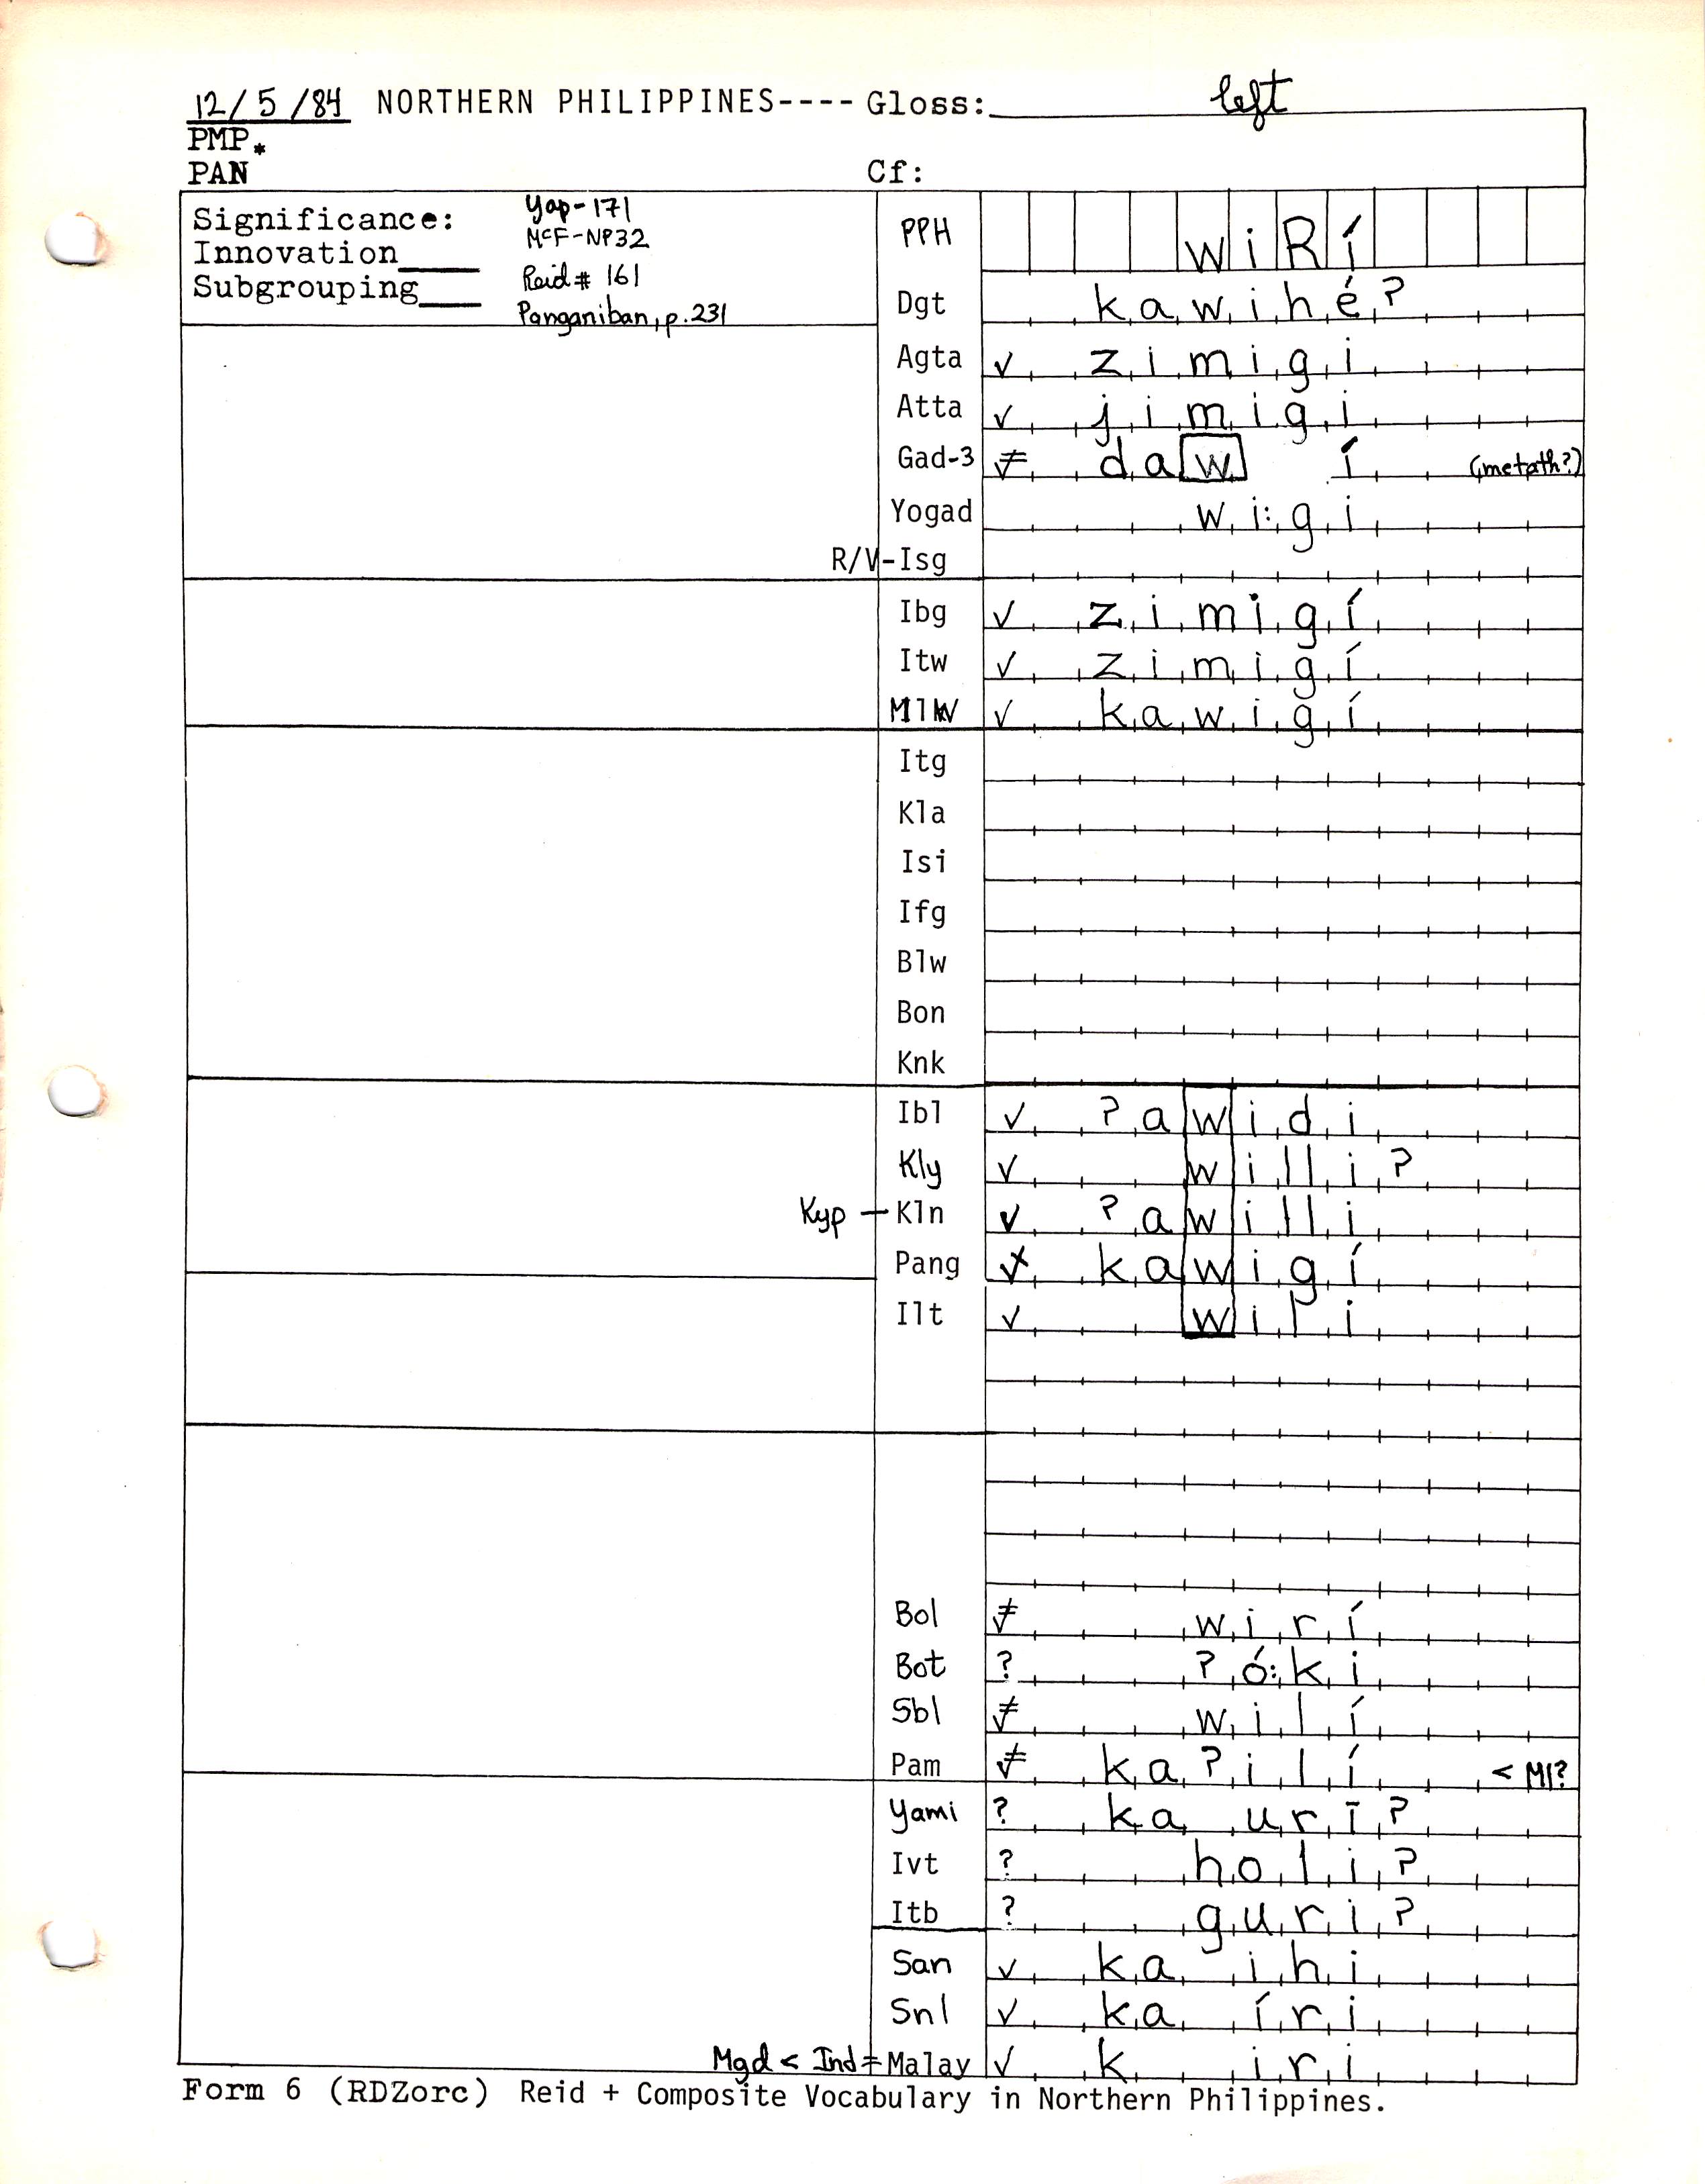 12/5/84 NORTHERN PHILIPPINES---- Gloss: left
PMP *
PAN Cf:
Significance: Yap-171
Innovation____ McF-NP32
Subgrouping____ Reid # 161
Panganiban, p.231
PPH wiRí
Dgt kawihé?
Agta ✓ zimigi
Atta ✓ jimigi
Gad-3 ≠ daw í (metath?)
Yogad wi:gi
R/V-Isg
Ibg ✓ zimigí
Itw ✓ zimigí
MlW ✓ kawigí
Itg
Kla
Isi
Ifg
Blw
Bon
Knk
Ibl ✓ ?awidi
Kly ✓ willi?
Kyp — Kln ✓ ?awilli
Pang ✓ kawigí
Ilt ✓ wili
Bol ≠ wirí
Bot ? ?ó:ki
Sbl ≠ wilí
Pam ≠ ka?ilí < Ml?
Yami ? ka urī?
Ivt ? holi?
Itb ? guri?
San ✓ ka ihi
Snl ✓ ka íri
Mgd < Ind = Malay ✓ k iri
Form 6 (RDZorc) Reid + Composite Vocabulary in Northern Philippines.